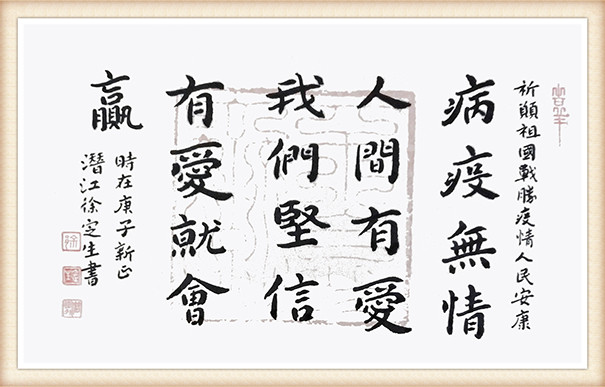 祈願祖國戰勝疫情人民安康
病疫無情
人間有愛
我們堅信
有愛就會
贏
時在庚子新正
潛江徐定生書